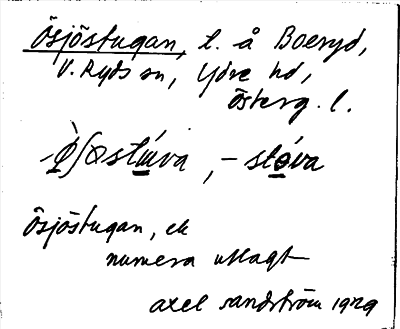 Ösjöstugan, l. å Boeryd,
V. Ryds sn, Ydre hd,
Österg. l.
stu̲va, – stɵ̲va
Ösjöstugan, ek
numera utlagt
axel sandström 1929